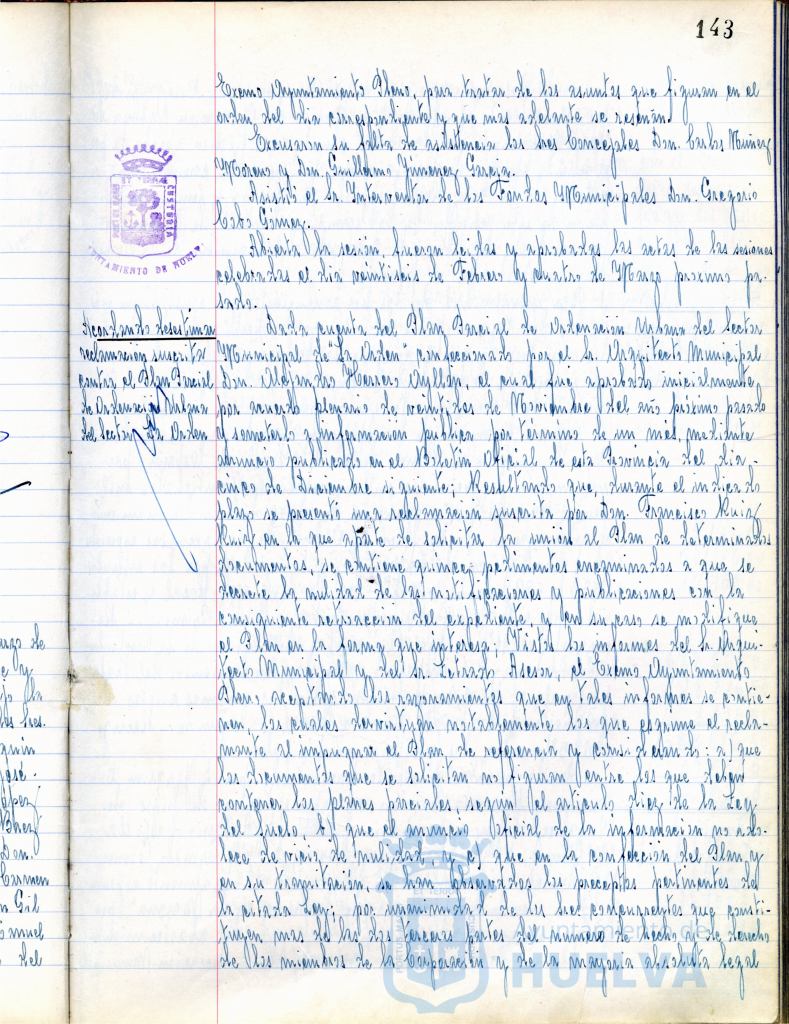 143
Excmo Ayuntamiento Pleno, para tratar de los asuntos que figuran en el
orden del dia correspondiente y que más adelante se reseñan.
Excusaron su falta de asistencia los Sres Concejales Don Carlos Muñoz
Moreno y Don Guillermo Jimenez Garcia.
Asistió el Sr. Interventor de los Fondos Municipales Don Gregorio
Cobo Gómez.
Abierta la sesión, fueron leidas y aprobadas las actas de las sesiones
celebradas el dia veintiseis de Febrero y cuatro de Marzo próximo pa-
sado.
CUSTODIA
AYUNTAMIENTO DE HUELVA
Acordando desestimar
reclamación suscrita
contra el Plan Parcial
de Ordenación Urbana
del Sector La Orden
Dada cuenta del Plan Parcial de Ordenación Urbana del Sector
Municipal de "La Orden" confeccionado por el Sr. Arquitecto Municipal
Don Alejandro Herrero Ayllón, el cual fue aprobado inicialmente
por acuerdo plenario de veintidos de Noviembre del año próximo pasado
y sometido a informacion pública por termino de un mes, mediante
anuncio publicado en el Boletin Oficial de esta Provincia del dia
cinco de Diciembre siguiente; Resultando que, durante el indicado
plazo se presentó una reclamación suscrita por Don Francisco Ruiz
Ruiz, en la que aparte de solicitar la unión al Plan de determinados
documentos, se contiene quince pedimentos encaminados a que se
decrete la nulidad de las notificaciones y publicaciones con la
consiguiente retroacción del expediente, y en su caso se modifique
el Plan en la forma que interesa; Vistos los informes del Sr. Arqui-
tecto Municipal y del Sr. Letrado Asesor, el Excmo Ayuntamiento
Pleno aceptando los razonamientos que en tales informes se contie-
nen, los cuales desvirtuan notablemente los que esgrime el recla-
mante al impugnar el Plan de referencia y considerando: a) que
los documentos que se solicitan no figuran entre los que deben
contener los planes parciales, segun el articulo diez de la Ley
del Suelo, b) que el anuncio oficial de la informacion no ado-
lece de vicio de nulidad y c) que en la confección del Plan, y
en su tramitación, se han observados los preceptos pertinentes de
la citada Ley; por unanimidad de los Sres concurrentes que consti-
tuyen más de las dos terceras partes del numero de hecho y de derecho
de los miembros de la Corporación y de la mayoria absoluta legal
Ayuntamiento de
HUELVA